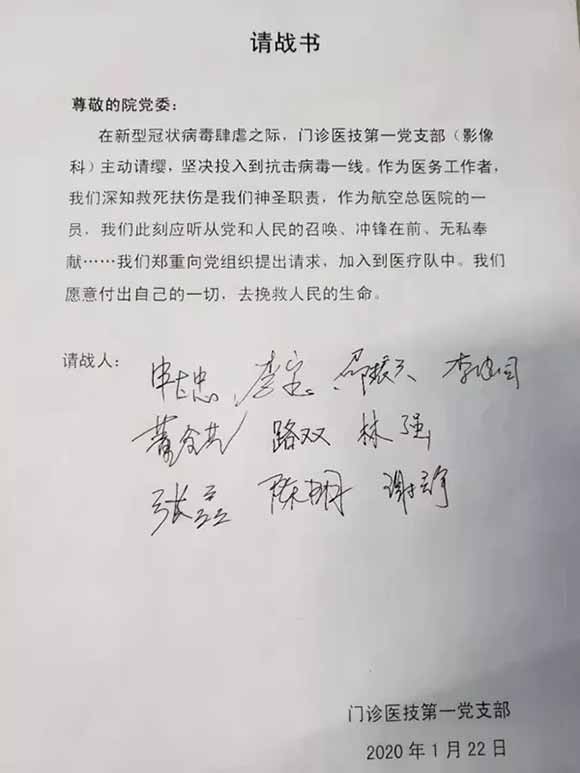 请战书
尊敬的院党委：
在新型冠状病毒肆虐之际，门诊医技第一党支部（影像
科）主动请缨，坚决投入到抗击病毒一线。作为医务工作者，
我们深知救死扶伤是我们神圣职责，作为航空总医院的一
员，我们此刻应听从党和人民的召唤、冲锋在前、无私奉
献……我们郑重向党组织提出请求，加入到医疗队中。我们
愿意付出自己的一切，去挽救人民的生命。
请战人：
路双 林强
张磊 陈明 谢静
门诊医技第一党支部
2020年1月22日